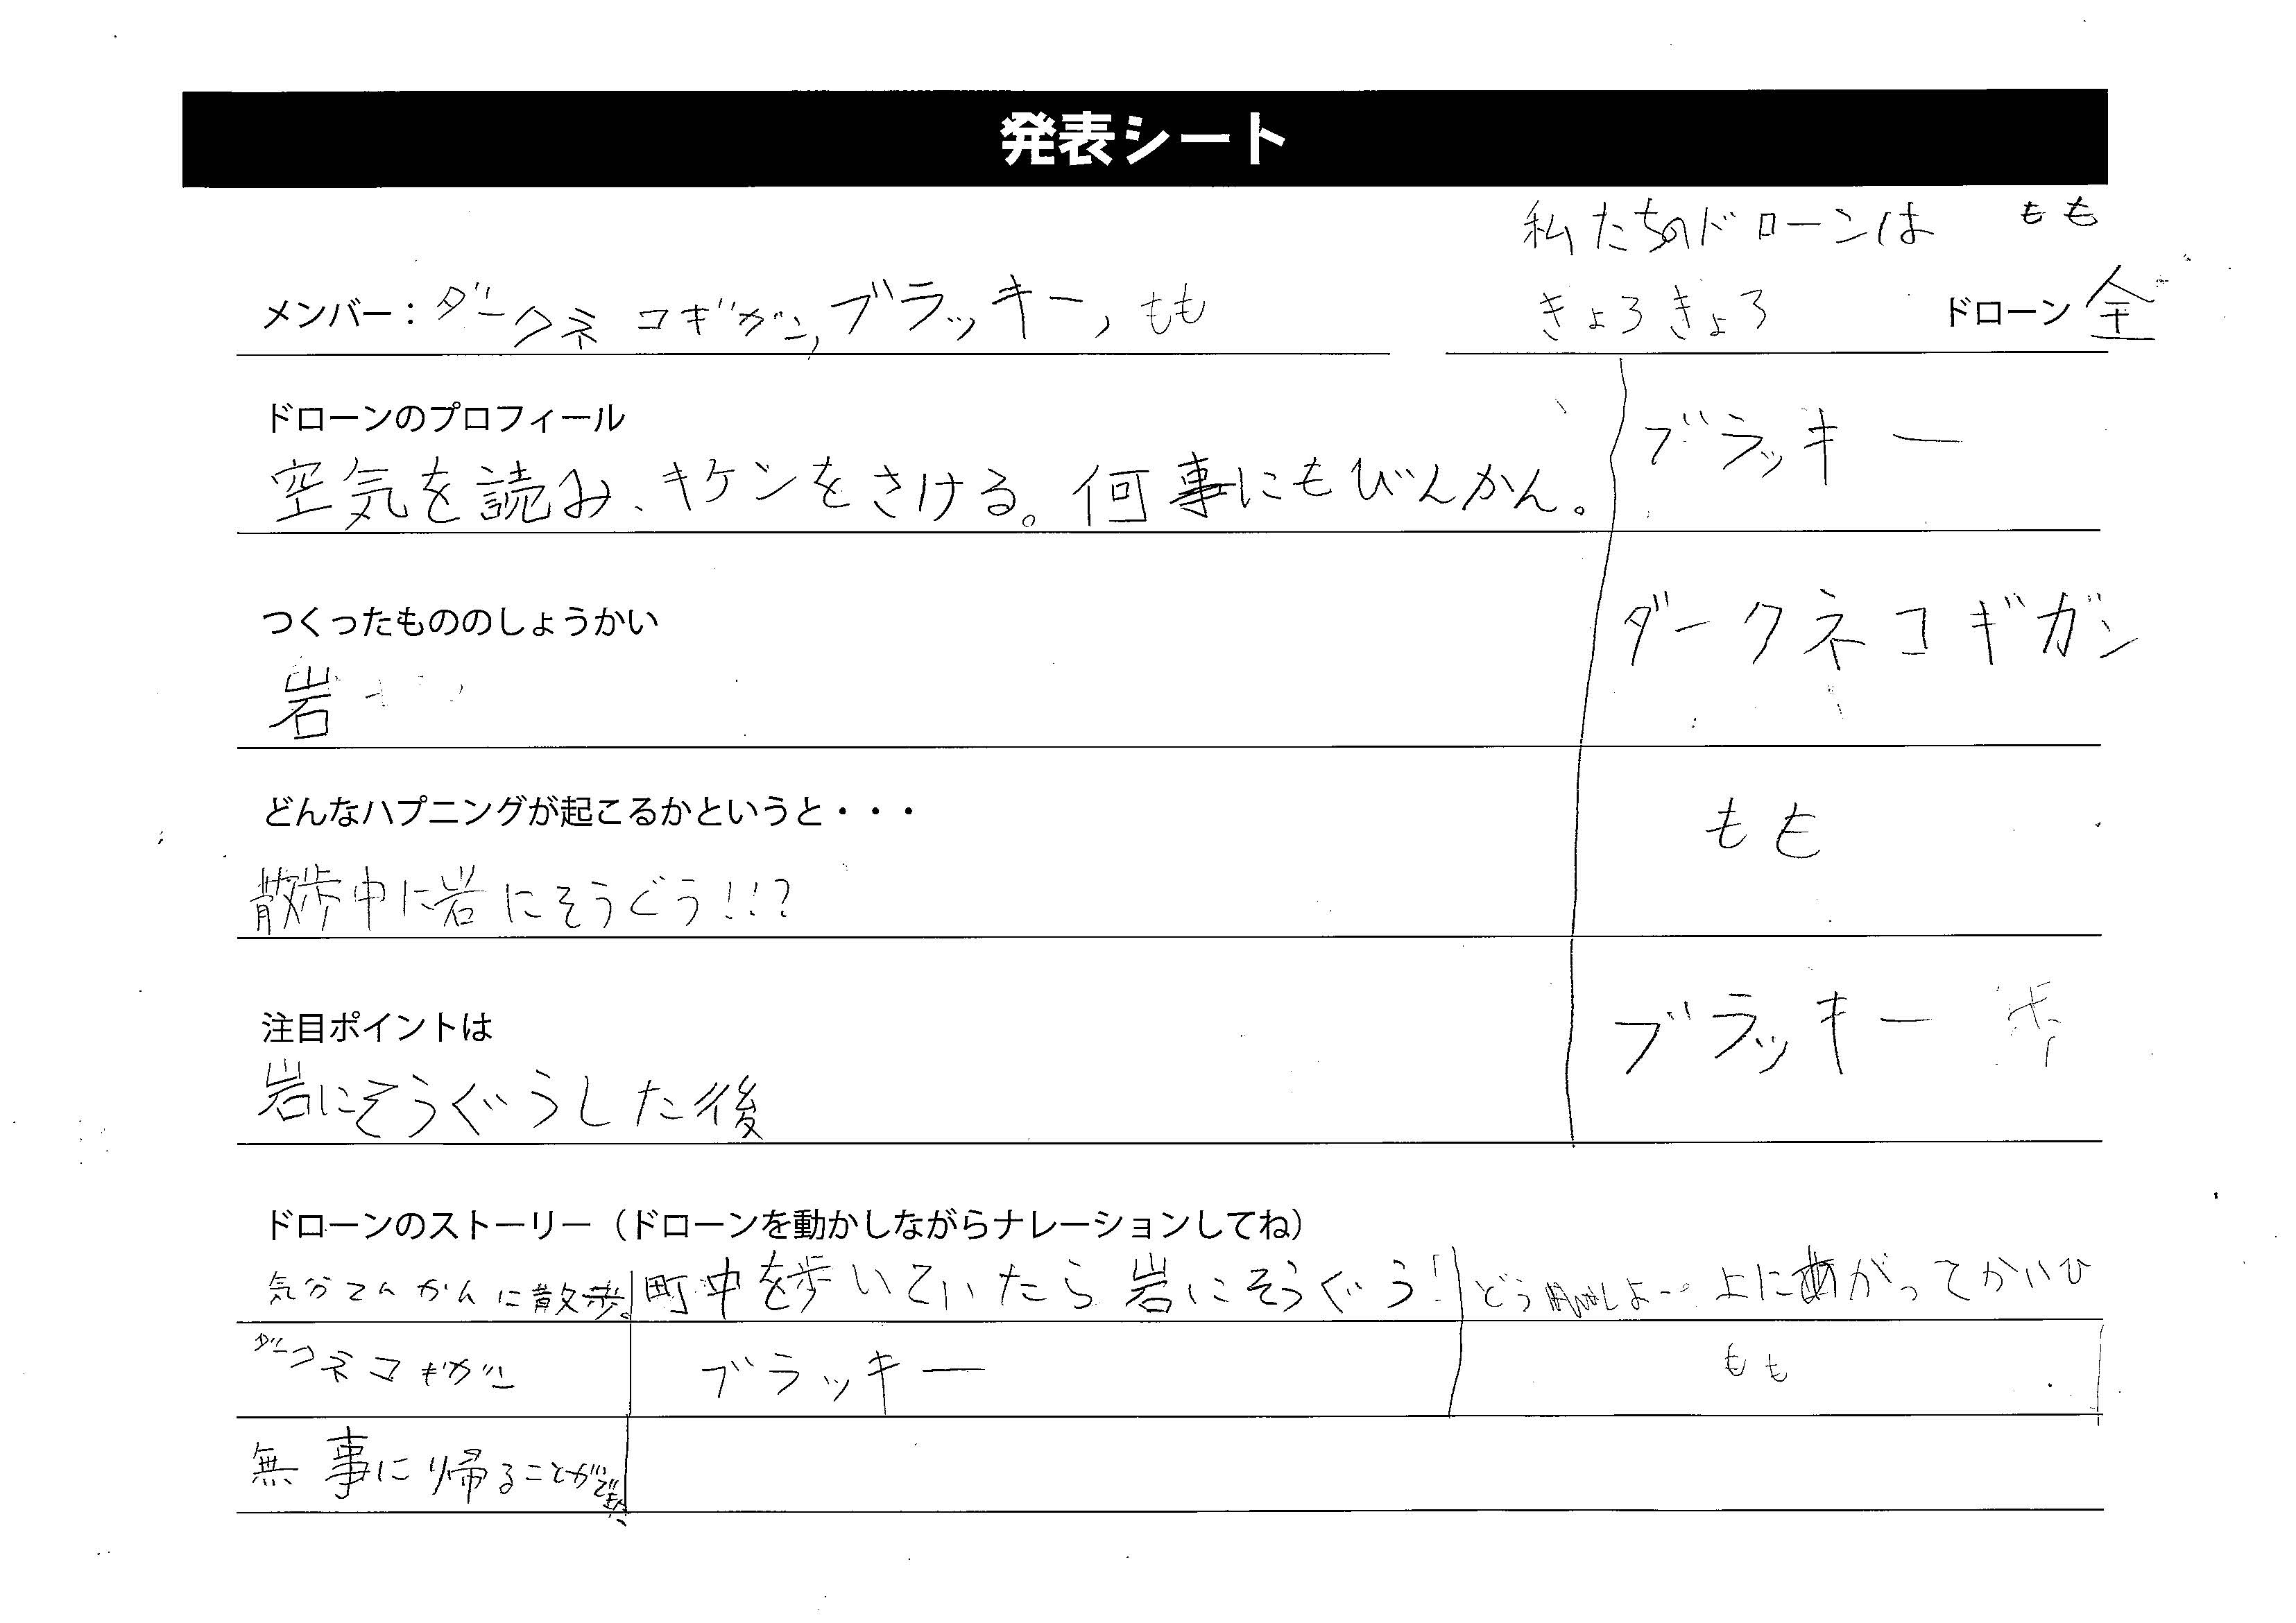 発表シート
私たちのドローンは もも
メンバー：ダークネコギガン,ブラッキー,もも きょろきょろ ドローン 全
ドローンのプロフィール
ブラッキー
空気を読み、キケンをさける。何事にもびんかん。
つくったもののしょうかい
ダークネコギガン
岩
どんなハプニングが起こるかというと・・・
もも
散歩中に岩にそうぐう!!?
注目ポイントは
ブラッキー
岩にそうぐうした後
ドローンのストーリー（ドローンを動かしながらナレーションしてね）
気分てんかんに散歩。 町中を歩いていたら岩にそうぐう! どう しよー 上にあがってかいひ
ダークネコギガン ブラッキー もも
無事に帰ることが